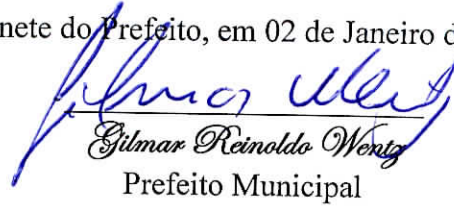 nete do Prefeito, em 02 de Janeiro d
Gilmar Wentz
Gilmar Reinoldo Wentz
Prefeito Municipal